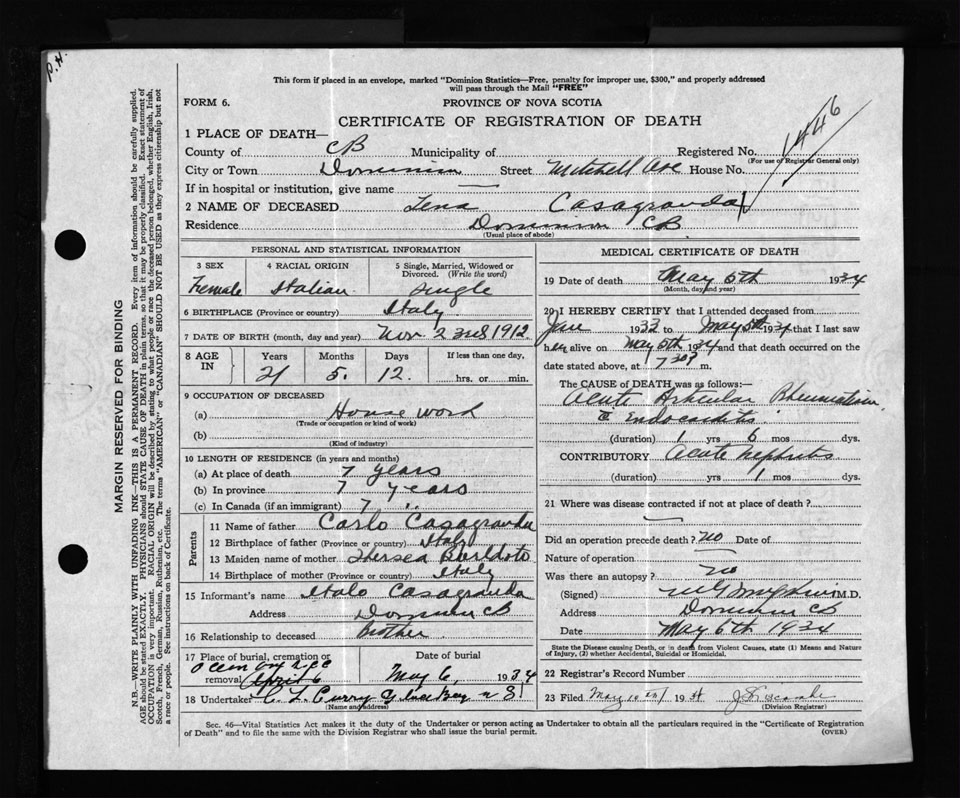 P.H.
This form if placed in an envelope, marked "Dominion Statistics—Free, penalty for improper use, $300," and properly addressed
will pass through the Mail "FREE"
FORM 6.
PROVINCE OF NOVA SCOTIA
CERTIFICATE OF REGISTRATION OF DEATH
1446
1 PLACE OF DEATH—
County of CB Municipality of Registered No.
(For use of Registrar General only)
City or Town Dominion Street Mitchell Ave House No.
If in hospital or institution, give name —
2 NAME OF DECEASED Tena Casagranda
Residence Dominion CB
(Usual place of abode)
PERSONAL AND STATISTICAL INFORMATION
3 SEX 4 RACIAL ORIGIN 5 Single, Married, Widowed or
Divorced. (Write the word)
Female Italian Single
6 BIRTHPLACE (Province or country) Italy
7 DATE OF BIRTH (month, day and year) Nov. 23rd 1912
8 AGE IN Years Months Days If less than one day,
21 5. 12. hrs. or min.
9 OCCUPATION OF DECEASED
(a) House word
(Trade or occupation or kind of work)
(b)
(Kind of industry)
10 LENGTH OF RESIDENCE (in years and months)
(a) At place of death 7 years
(b) In province 7 years
(c) In Canada (if an immigrant) 7 "
Parents
11 Name of father Carlo Casagranda
12 Birthplace of father (Province or country) Italy
13 Maiden name of mother
14 Birthplace of mother (Province or country) Italy
15 Informant's name Italo Casagranda
Address Dominion CB
16 Relationship to deceased Brother
17 Place of burial, cremation or Date of burial
removal April 6 May 6, 1934
18 Undertaker C. L. Curry Glace Bay N S
(Name and address)
MEDICAL CERTIFICATE OF DEATH
19 Date of death May 5th 1934
(Month, day and year)
20 I HEREBY CERTIFY that I attended deceased from
June 1932 to May 5th 1934 that I last saw
her alive on May 5th 1934 and that death occurred on the
date stated above, at 7 30 P m.
The CAUSE of DEATH was as follows:—
Acute Articular Rheumatism
c Endocarditis
(duration) 1 yrs 6 mos dys.
CONTRIBUTORY Acute Nephritis
(duration) yrs 1 mos dys.
21 Where was disease contracted if not at place of death?
—
Did an operation precede death? no Date of
Nature of operation
Was there an autopsy? no
(Signed) M.D.
Address Dominion CB
Date May 6th 1934
State the Disease causing Death, or in death from Violent Causes, state (1) Means and Nature
of Injury, (2) whether Accidental, Suicidal or Homicidal.
22 Registrar's Record Number
23 Filed May 10th 1934
(Division Registrar)
Sec. 46—Vital Statistics Act makes it the duty of the Undertaker or person acting as Undertaker to obtain all the particulars required in the "Certificate of Registration
of Death" and to file the same with the Division Registrar who shall issue the burial permit.
(OVER)
MARGIN RESERVED FOR BINDING
N.B.—WRITE PLAINLY WITH UNFADING INK—THIS IS A PERMANENT RECORD. Every item of information should be carefully supplied.
AGE should be stated EXACTLY. PHYSICIANS should STATE CAUSE OF DEATH in plain terms, so that it may be properly classified. Exact statement of
OCCUPATION is very important. RACIAL ORIGIN will be described by stating to what people or race the deceased person belonged, whether English, Irish,
Scotch, French, German, Russian, Ruthenian, etc. The terms "AMERICAN" or "CANADIAN" SHOULD NOT BE USED as they express citizenship but not
a race or people. See instructions on back of Certificate.